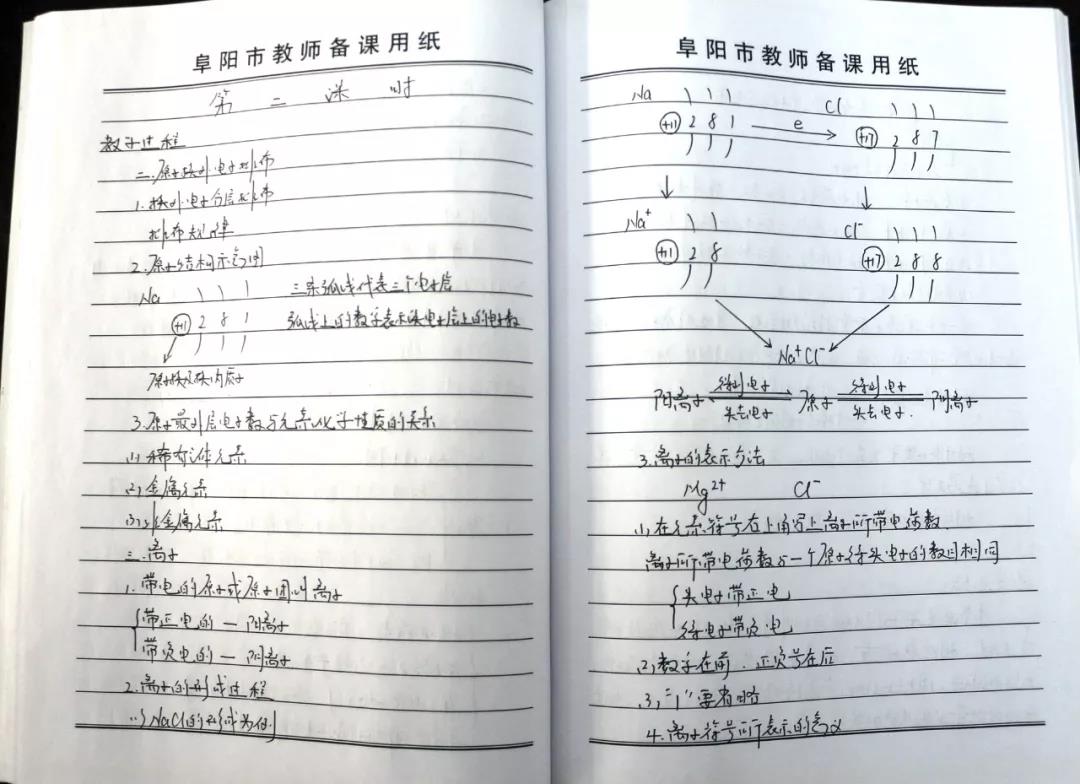 阜阳市教师备课用纸
第二课时
教学过程
二.原子核外电子排布
1.核外电子分层排布
排布规律
2.原子结构示意图
Na
三条弧线代表三个电子层
+11 2 8 1
弧线上的数字表示该电子层上的电子数
原子核及核内质子
3.原子最外层电子数与元素化学性质的关系
(1)稀有气体元素
(2)金属元素
(3)非金属元素
三.离子
1.带电的原子或原子团叫离子
带正电的—阳离子
带负电的—阴离子
2.离子的形成过程
以NaCl的形成为例
阜阳市教师备课用纸
Na Cl
+11 2 8 1 e +17 2 8 7
Na⁺ Cl⁻
+11 2 8 +17 2 8 8
Na⁺Cl⁻
阳离子 得到电子 失去电子 原子 得到电子 失去电子 阴离子
3.离子的表示方法
Mg²⁺ Cl⁻
(1)在元素符号右上角写上离子所带电荷数
离子所带电荷数与一个原子得失电子的数目相同
失电子带正电
得电子带负电
(2)数字在前.正负号在后
(3)"1"要省略
4.离子符号所表示的意义